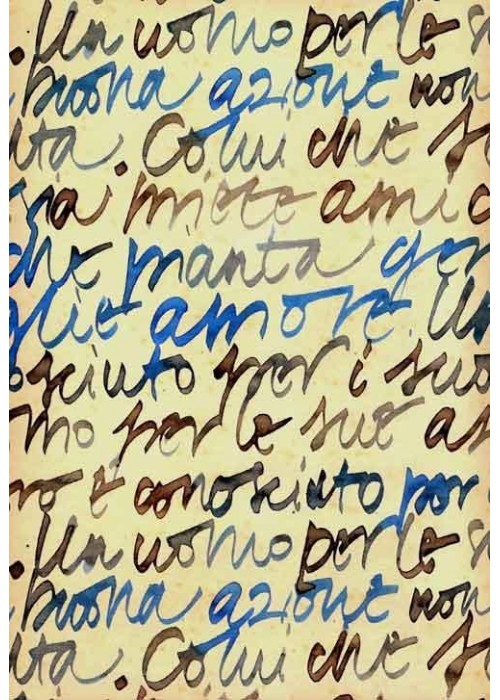 . Un uomo per le s
buona azione non
lta. Colui che s
sia miete amic
che pianta gen
glie amore. Un
osciuto per i suo
mo per le sue az
ro è conosciuto per
. Un uomo per le s
buona azione non
lta. Colui che s